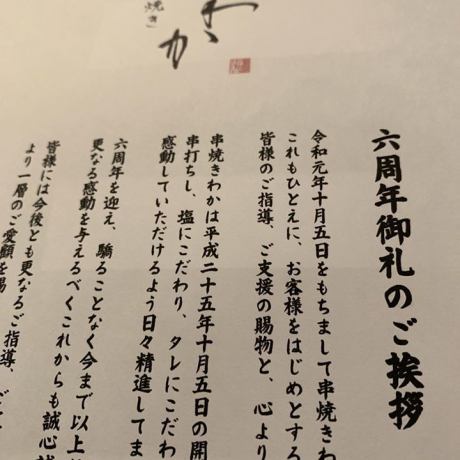 焼き
わか
六周年御礼のご挨拶
令和元年十月五日をもちまして串焼きわ
これもひとえに、お客様をはじめとする
皆様のご指導、ご支援の賜物と、心より
串焼きわかは平成二十五年十月五日の開
串打ちし、塩にこだわり、タレにこだわ
感動していただけるよう日々精進してま
六周年を迎え、驕ることなく今まで以上
更なる感動を与えるべくこれからも誠心
皆様には今後とも更なるご指導、ご
より一層のご愛顧を賜